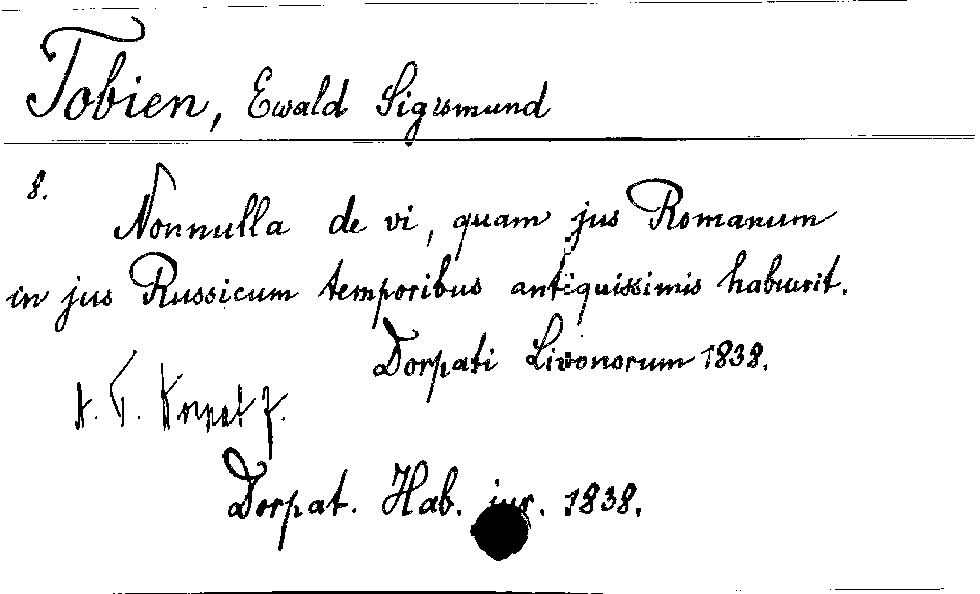 Tobien, Ewald Sigismund
8.
Nonnulla de vi, quam jus Romanum
in jus Russicum temporibus antiquissimis habuerit.
Dorpati Livonorum 1838.
Dorpat. Hab. jur. 1838.